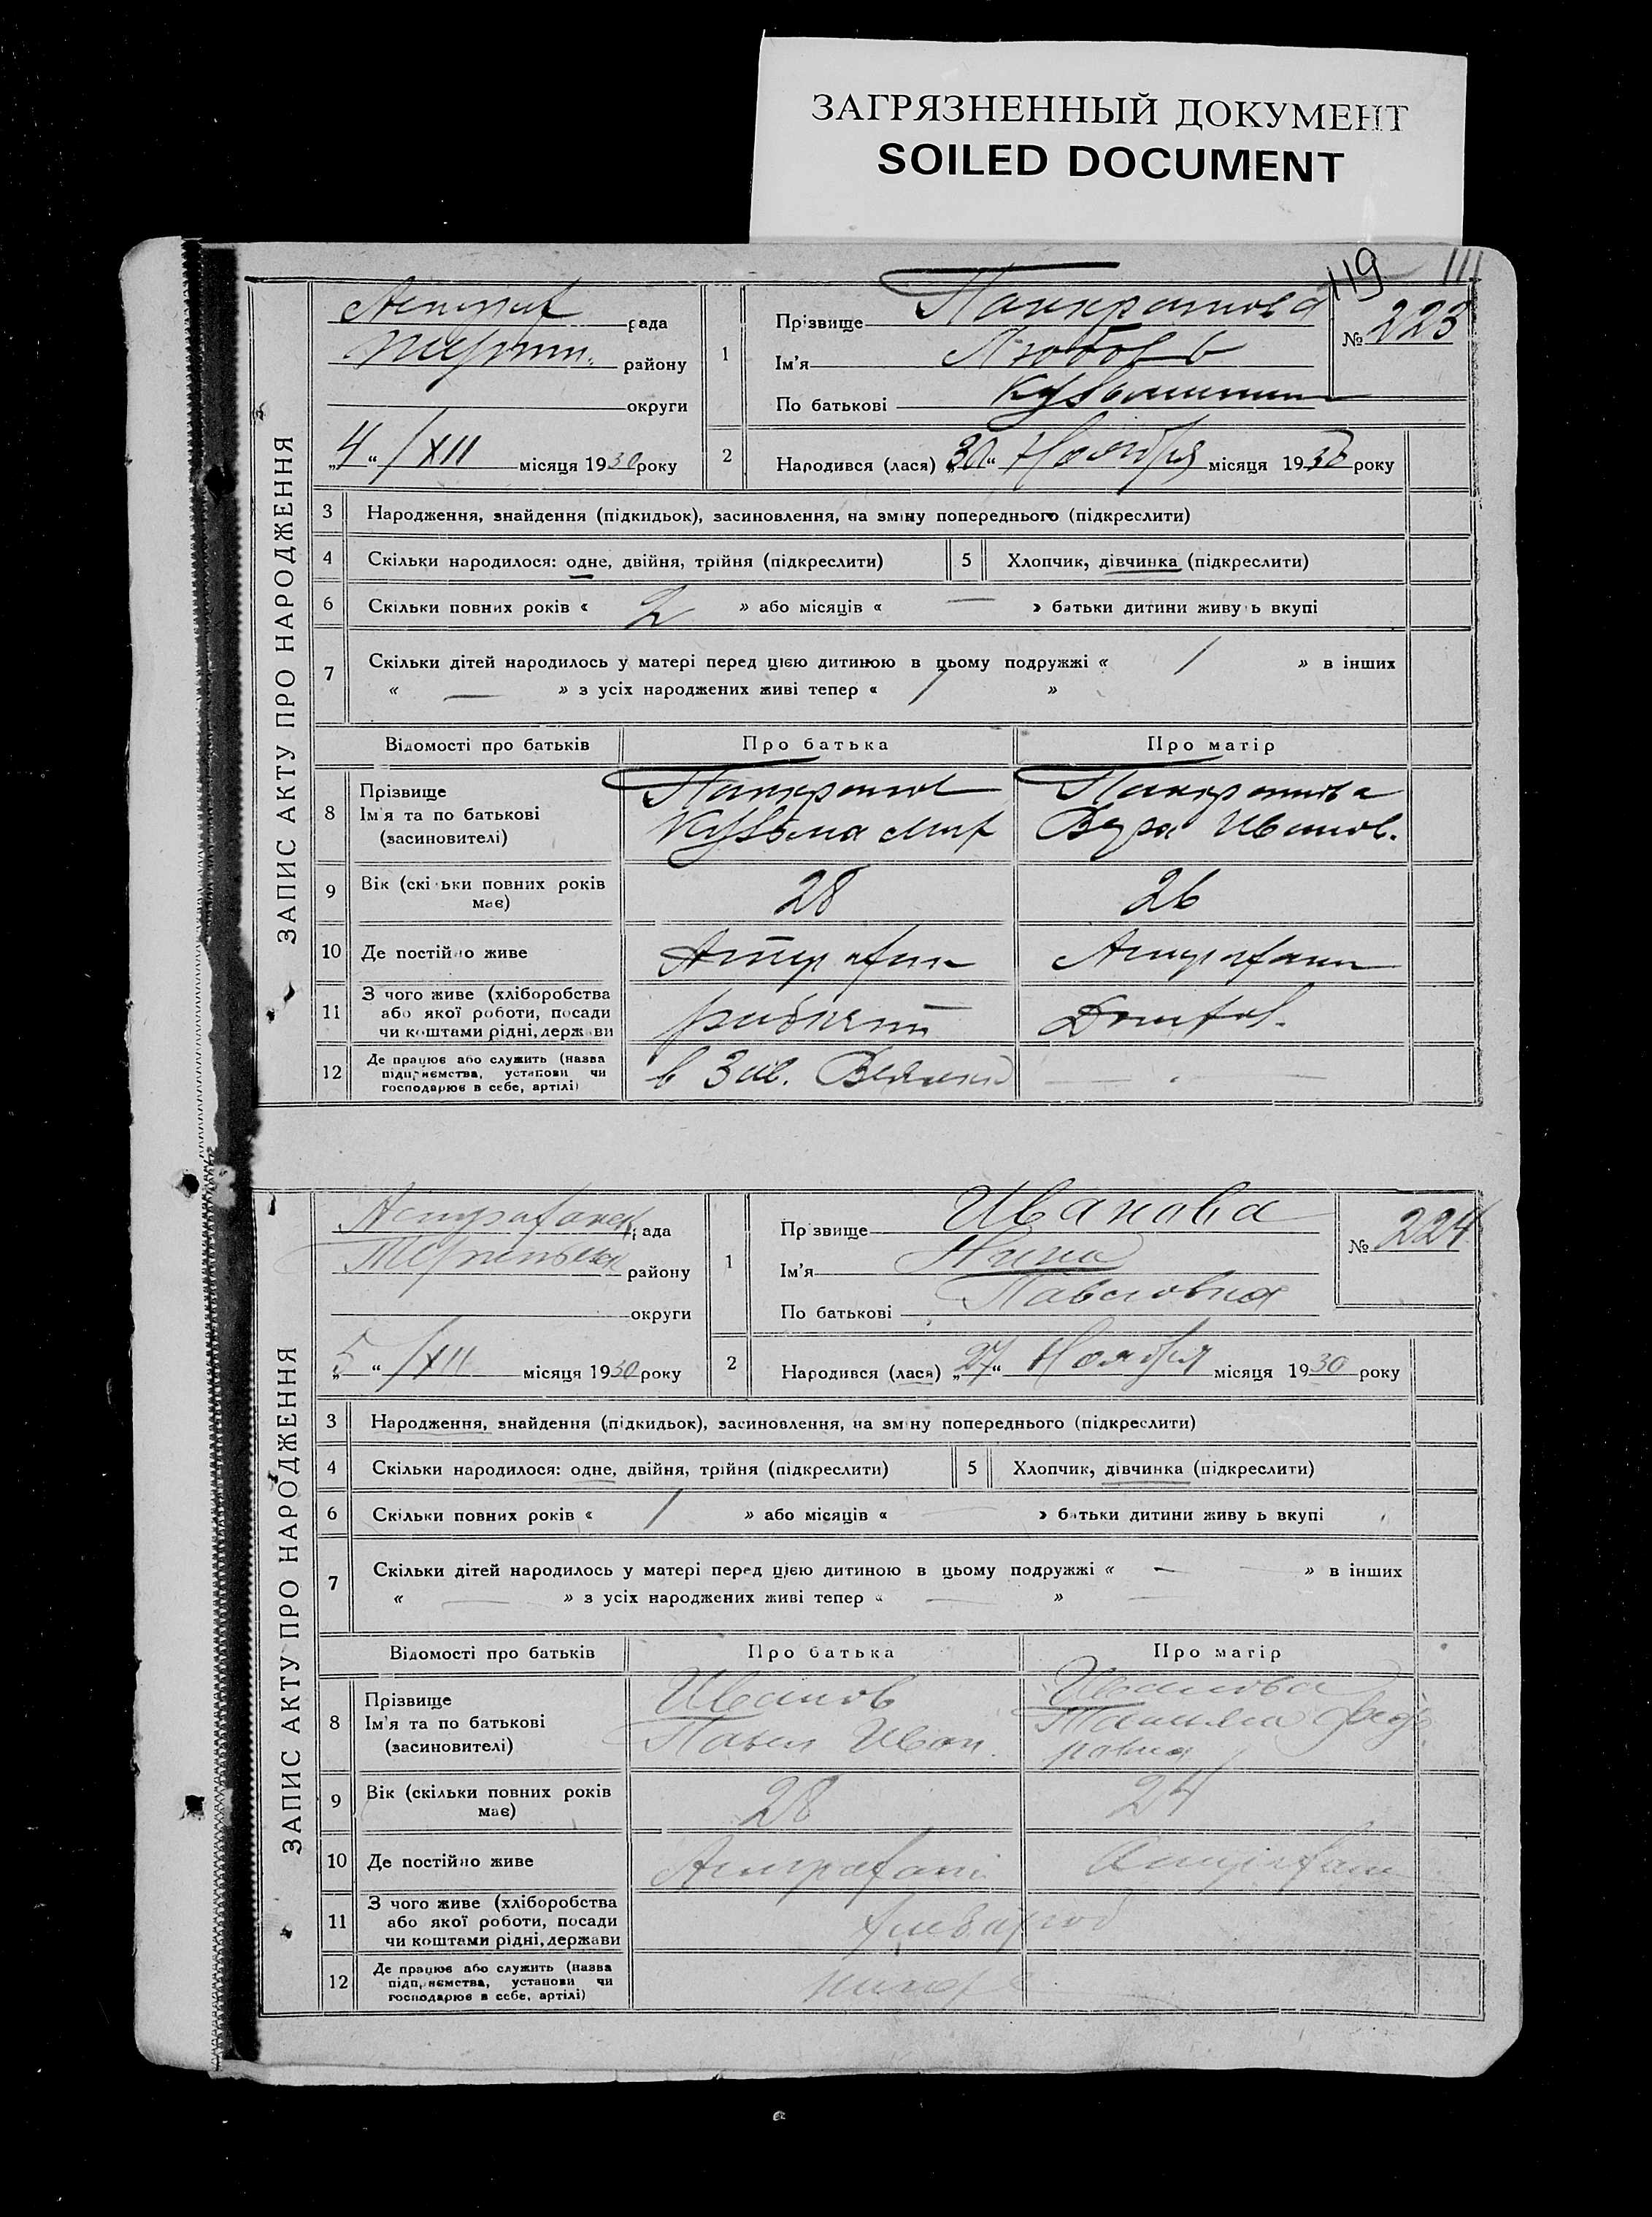 ЗАГРЯЗНЕННЫЙ ДОКУМЕНТ
SOILED DOCUMENT
119 111
ЗАПИС АКТУ ПРО НАРОДЖЕННЯ
рада
району
округи
„4“ /XII місяця 1930 року
1
Прізвище Панкратова
Ім'я Любовь
По батькові Кузьминична
№ 223
2 Народився (лася) „30“ Ноября місяця 1930 року
3 Народження, знайдення (підкидьок), засиновлення, на зміну попереднього (підкреслити)
4 Скільки народилося: одне, двійня, трійня (підкреслити) 5 Хлопчик, дівчинка (підкреслити)
6 Скільки повних років « 2 » або місяців « — » батьки дитини живуть вкупі
7 Скільки дітей народилось у матері перед цією дитиною в цьому подружжі « 1 » в інших
« — » з усіх народжених живі тепер « 1 »
Відомості про батьків Про батька Про матір
8 Прізвище
Ім'я та по батькові
(засновителі)
Панкратов
Кузьма Мит
Панкратова
Вера Иванов.
9 Вік (скільки повних років має) 28 26
10 Де постійно живе
11 З чого живе (хліборобства
або якої роботи, посади
чи коштами рідні, держави
12 Де працює або служить (назва
підприємства, установи чи
господарює в себе, артілі)
в Зав.
ЗАПИС АКТУ ПРО НАРОДЖЕННЯ
рада
району
округи
„5“ /XII місяця 1930 року
1
Прізвище Иванова
Ім'я Нина
По батькові Павловна
№ 224
2 Народився (лася) „27“ Ноября місяця 1930 року
3 Народження, знайдення (підкидьок), засиновлення, на зміну попереднього (підкреслити)
4 Скільки народилося: одне, двійня, трійня (підкреслити) 5 Хлопчик, дівчинка (підкреслити)
6 Скільки повних років « 1 » або місяців « — » батьки дитини живуть вкупі
7 Скільки дітей народилось у матері перед цією дитиною в цьому подружжі « — » в інших
« — » з усіх народжених живі тепер « — »
Відомості про батьків Про батька Про матір
8 Прізвище
Ім'я та по батькові
(засиновителі)
Иванов
Павел Иван.
Иванова
Татьяна Федо
ровна
9 Вік (скільки повних років має) 28 24
10 Де постійно живе
11 З чого живе (хліборобства
або якої роботи, посади
чи коштами рідні, держави
12 Де працює або служить (назва
підприємства, установи чи
господарює в себе, артілі)